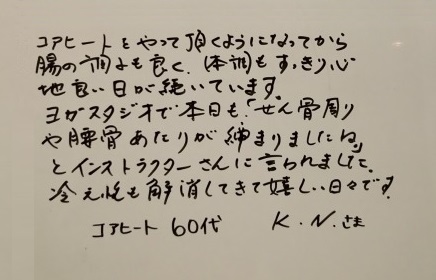 コアヒートをやって頂くようになってから
腸の調子も良く、(体調)もすっきり心
地良い日が続いています。
ヨガスタジオで本日も、「せん骨周り
や腰骨あたりが締まりましたね」
とインストラクターさんに言われました。
冷え性も解消してきて嬉しい日々です。
コアヒート 60代 K.N.さま